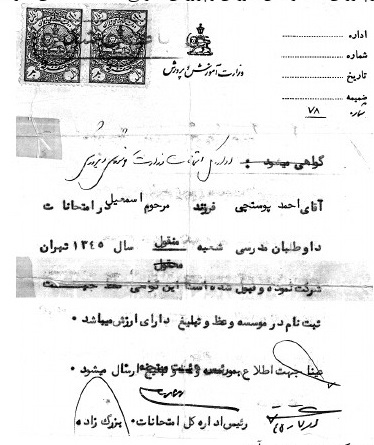 اداره
شماره
تاریخ
ضمیمه
شماره ۷۸
وزارت آموزش و پرورش
گواهی میشود
آقای احمد پوستچی فرزند مرحوم اسمعیل در امتحانات
داوطلبان مدرسی شعبه منقول سال ۱۳۴۵ تهران
معقول
شرکت نموده و قبول شده است این گواهی فقط جهت
ثبت نام در موسسه وعظ و تبلیغ دارای ارزش میباشد ۰
عینا جهت اطلاع بموسسه وعظ و تبلیغ ارسال میشود ۰
رئیس اداره کل امتحانات ۰ بزرگ زاده